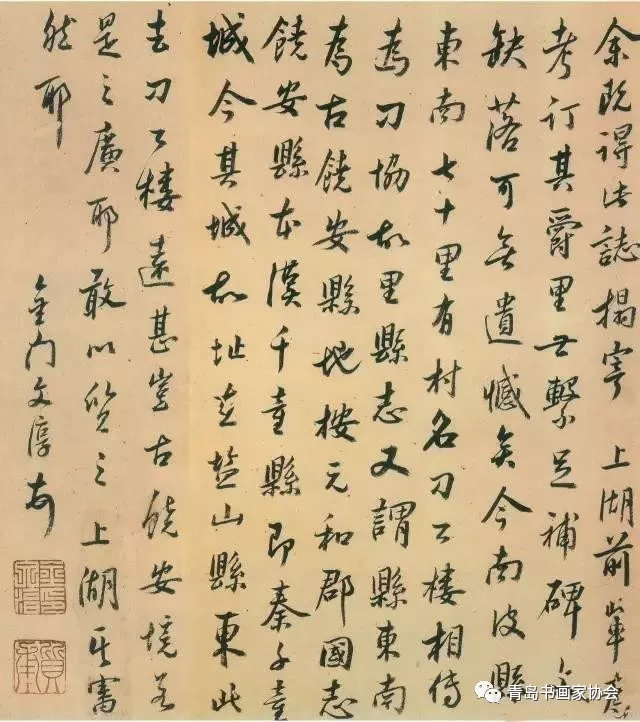 余既得此誌搨寄 上湖前輩
考訂其爵里世繫足補碑文
缺落可無遺憾矣今南皮縣
東南七十里有村名刁公樓相傳
為刁協故里縣志又謂縣東南
為古饒安縣地按元和郡國志
饒安縣本漢千童縣即秦千童
城今其城故址在塩山縣東此
去刁公樓遠甚豈古饒安境若
是之廣耶敢以質之 上湖其審
然耶
金門文淳
質甫
青岛书画家协会